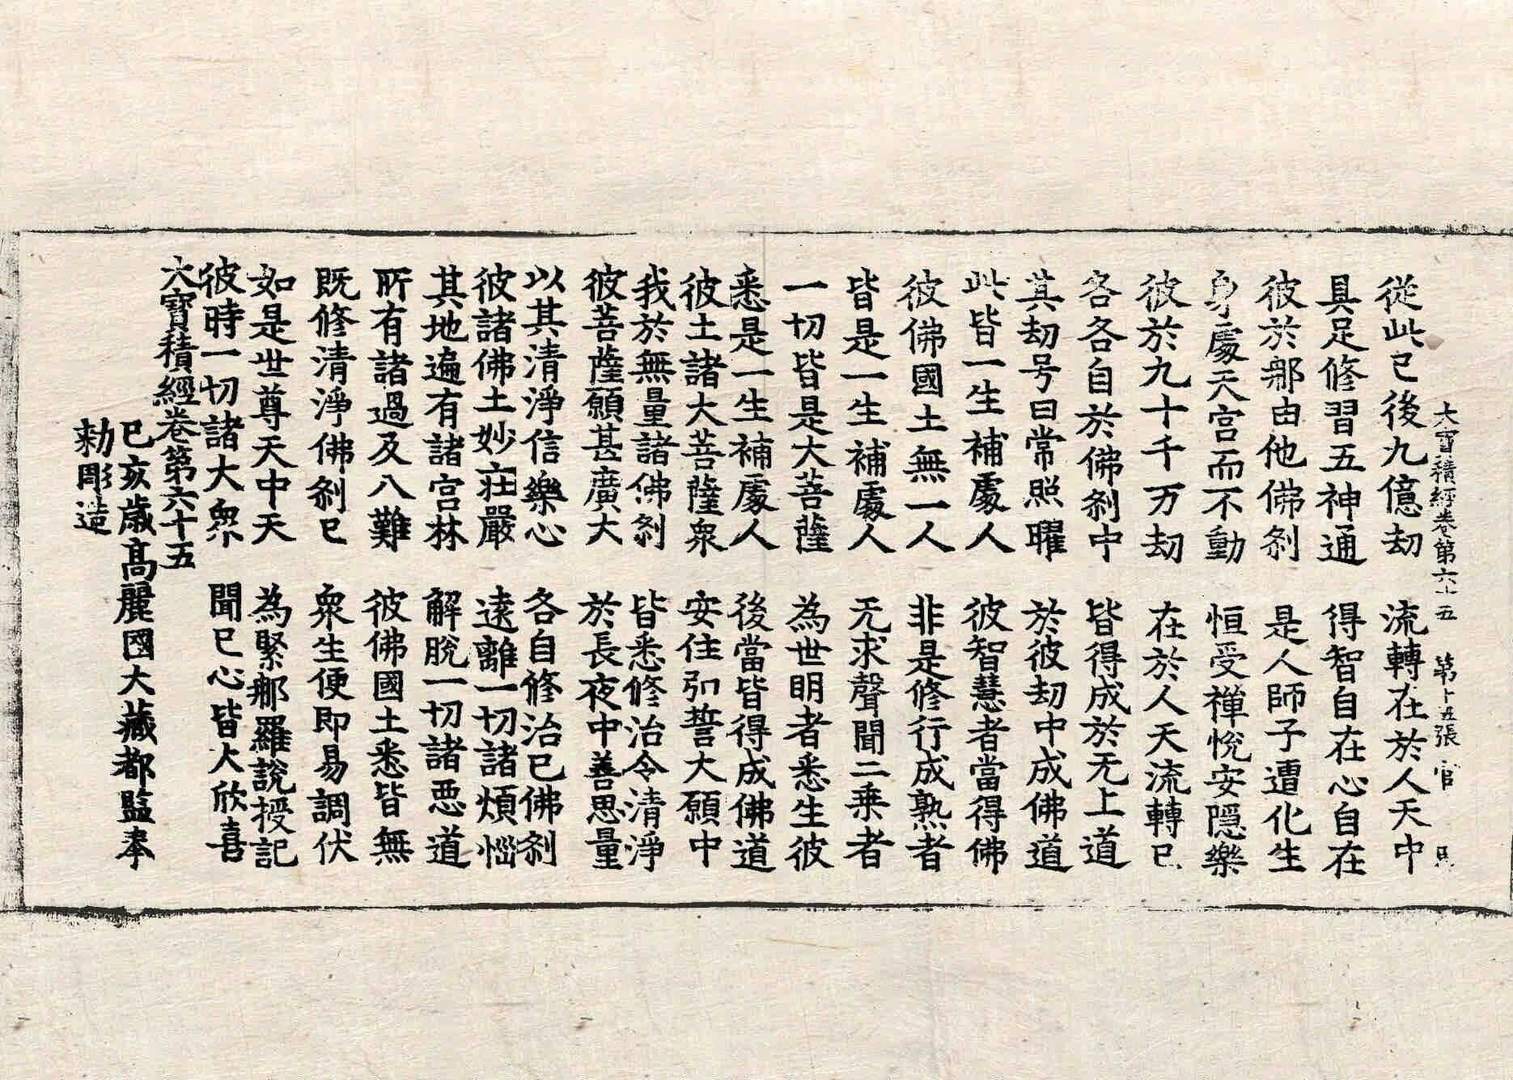 大寶積經卷第六十五 第十五張 官
從此已後九億劫 流轉在於人天中
具足修習五神通 得智自在心自在
彼於那由他佛剎 是人師子遭化生
身處天宮而不動 恒受禪悅安隱樂
彼於九十千万劫 在於人天流轉已
各各自於佛剎中 皆得成於无上道
其劫号曰常照曜 於彼劫中成佛道
此皆一生補處人 彼智慧者當得佛
彼佛國土無一人 非是修行成熟者
皆是一生補處人 无求聲聞二乗者
一切皆是大菩薩 為世明者悉生彼
悉是一生補處人 後當皆得成佛道
彼土諸大菩薩衆 安住弘誓大願中
我於無量諸佛剎 皆悉修治令清淨
彼菩薩願甚廣大 於長夜中善思量
以其清淨信樂心 各自修治已佛剎
彼諸佛土妙莊嚴 遠離一切諸煩惱
其地遍有諸宮林 解脫一切諸惡道
所有諸過及八難 彼佛國土悉皆無
既修清淨佛剎已 衆生便即易調伏
如是世尊天中天 為緊那羅說授記
彼時一切諸大衆 聞已心皆大欣喜
大寶積經卷第六十五
已亥歲高麗國大藏都監奉
勅彫造